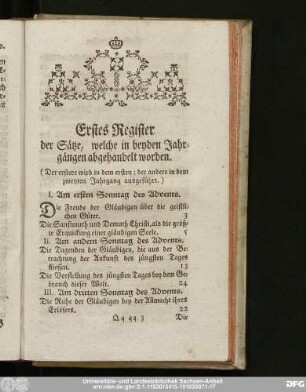 Erstes Register
der Sätze, welche in beyden Jahr-
gängen abgehandelt worden.
(Der erstere wird in dem ersten: der andere in dem
zweyten Jahrgang ausgeführt.)
I. Am ersten Sonntag des Advents.
Die Freude der Gläubigen über die geistli-
chen Güter. 3
Die Sanftmuth und Demuth Christi, als die größ-
te Erquickung einer gläubigen Seele. 5
II. Am andern Sonntag des Advents.
Die Tugenden der Gläubigen, die aus der Be-
trachtung der Ankunft des jüngsten Tages
fliessen. 13
Die Vorstellung des jüngsten Tages bey dem Ge-
brauch dieser Welt. 24
III. Am dritten Sonntag des Advents.
Die Ruhe der Gläubigen bey der Allmacht ihres
Erlösers. 22
Qq qq 3 Die
Universitäts- und Landesbibliothek Sachsen-Anhalt